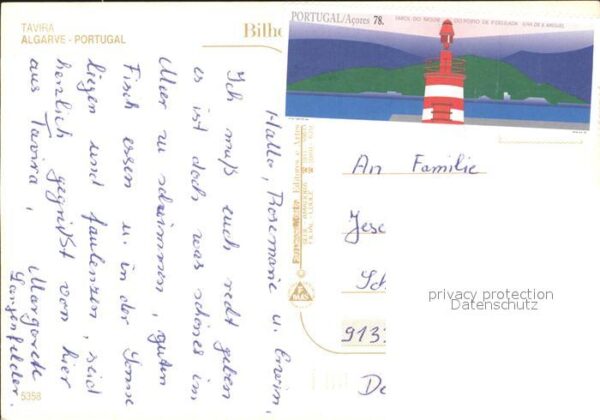 TAVIRA
ALGARVE - PORTUGAL
Bilhe
PORTUGAL/Açores 78.
FAROL DO MOLHE DO PORTO DE P. DELGADA ILHA DE S. MIGUEL
Hallo, Rosemarie u. Erwin,
Ich muß euch recht geben
es ist doch was schönes im
Meer zu schwimmen, guten
Fisch essen u. in der Sonne
liegen und faulenzen, seid
herzlich gegrüßt von hier
aus Tavira, Margarete
Langenfelder.
An Familie
Jese
Sch
913
De
privacy protection
Datenschutz
5358